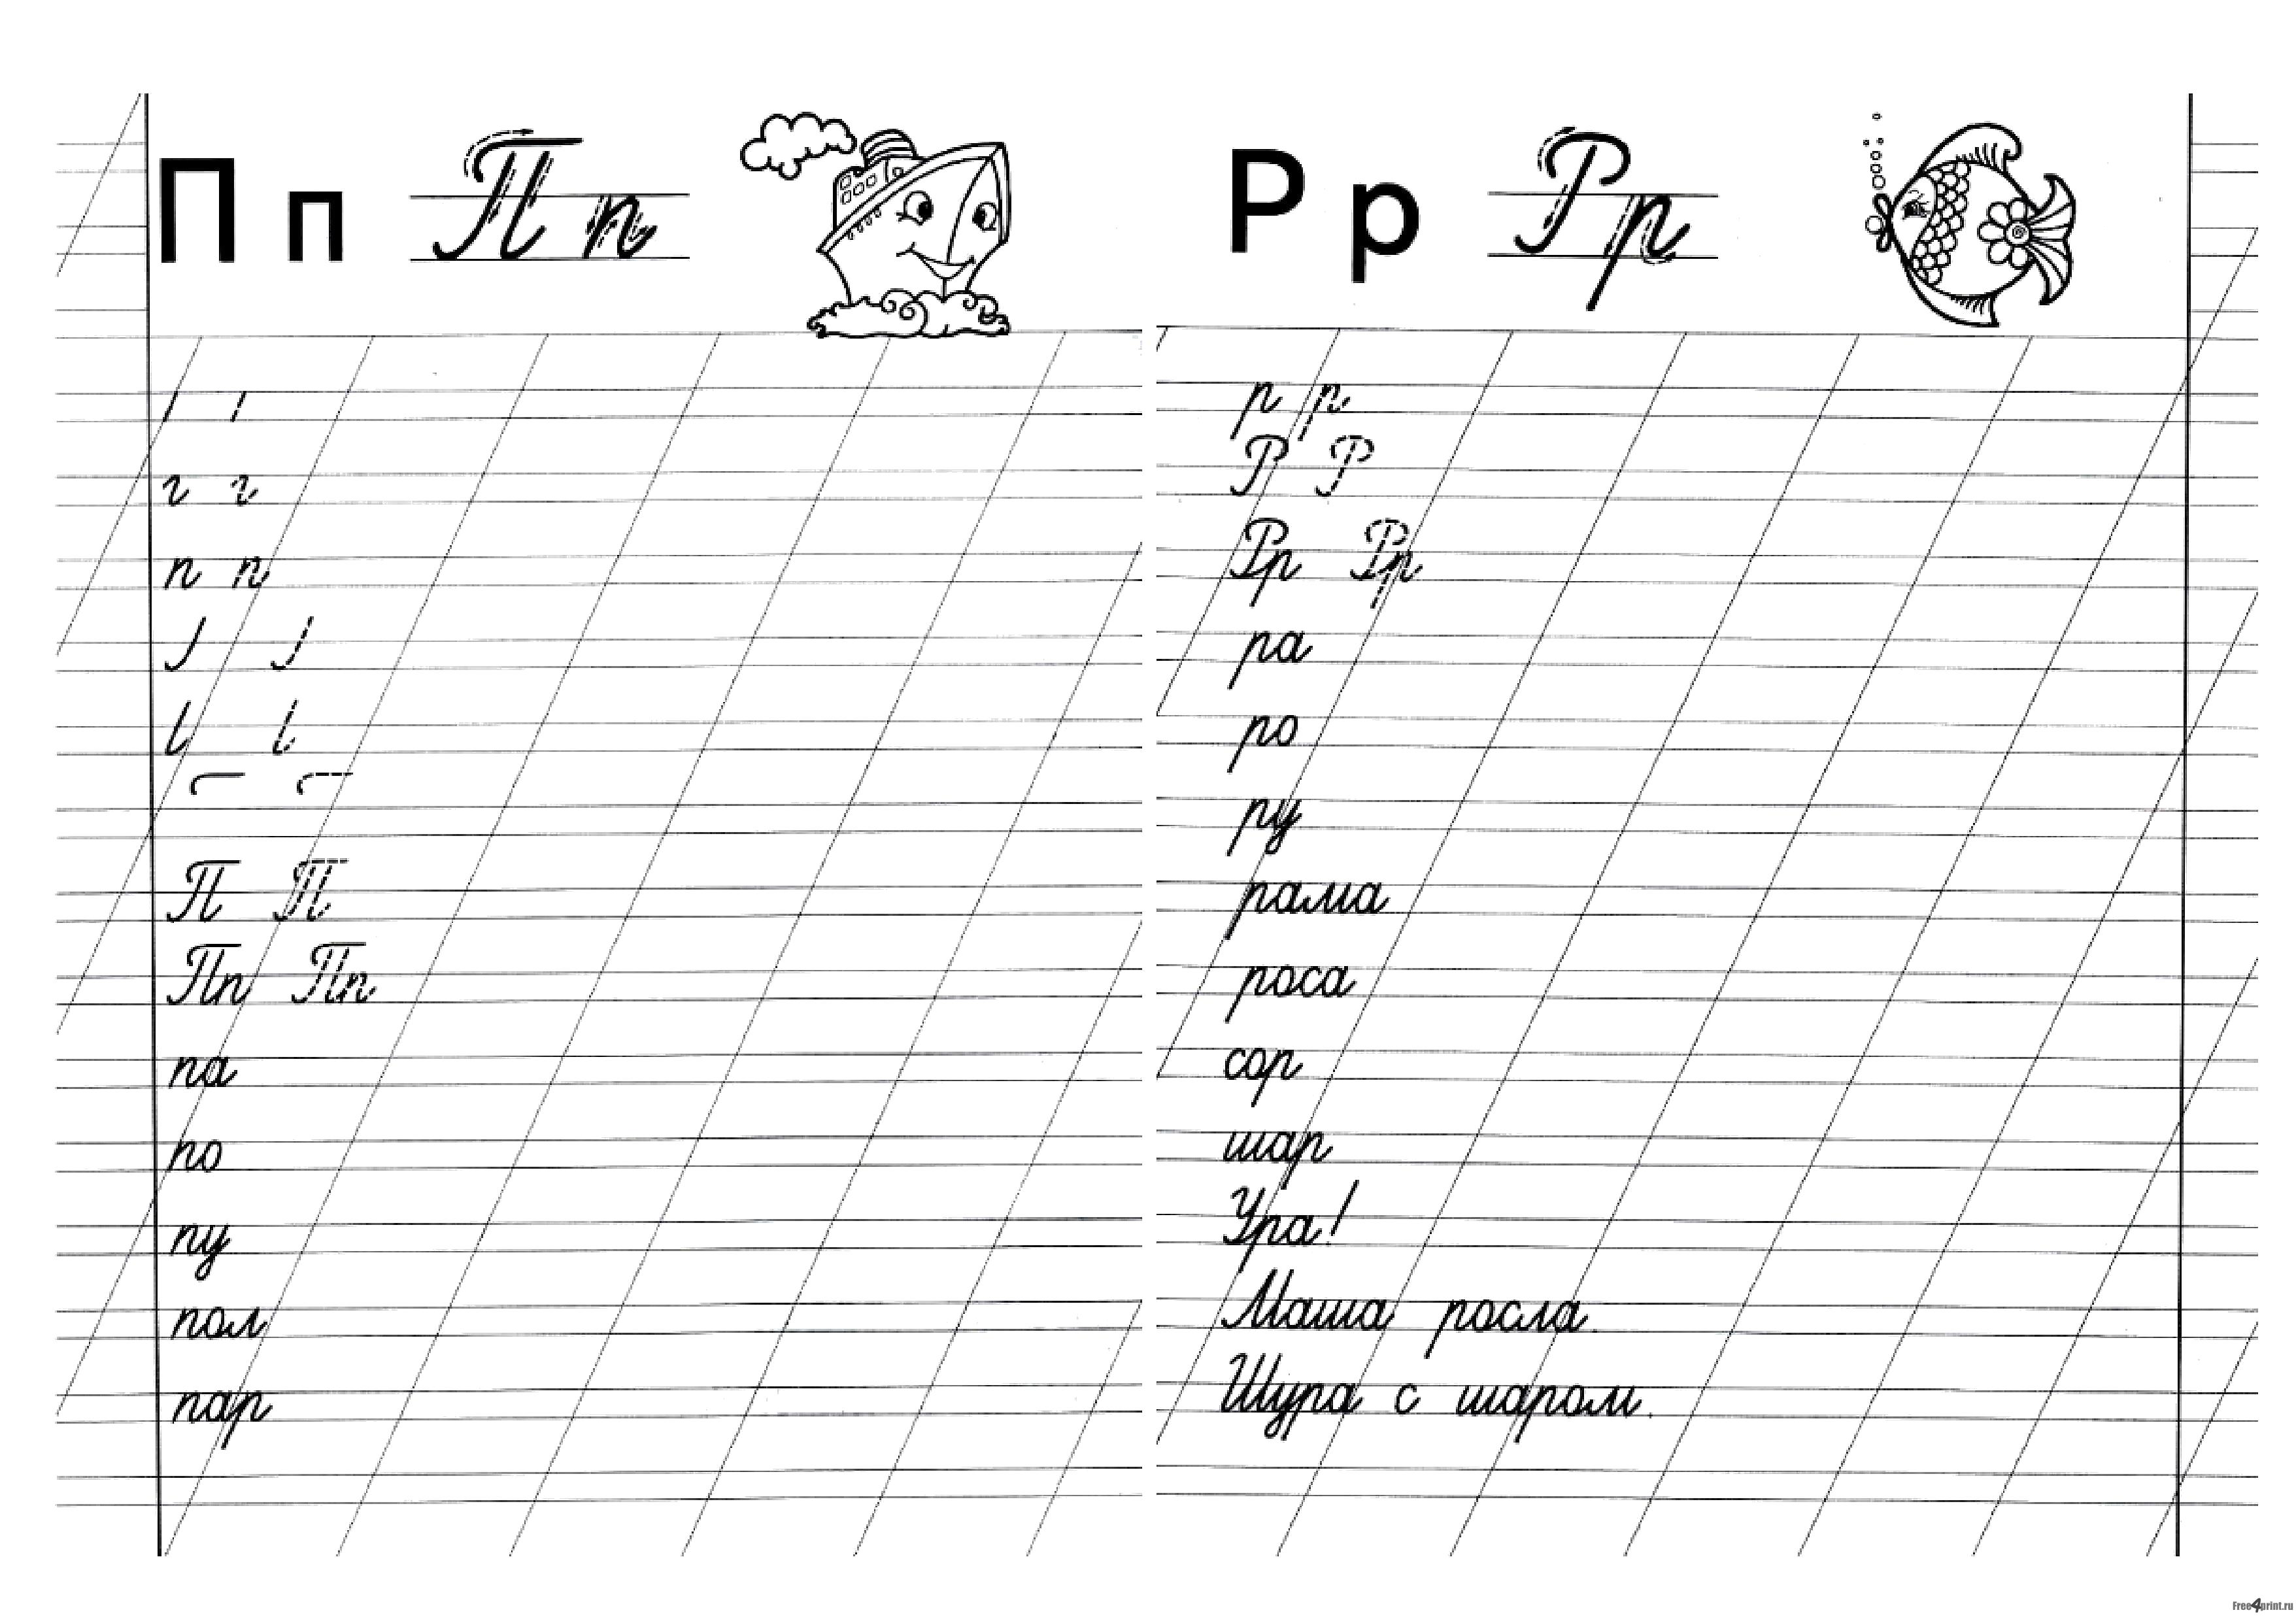 П п П п
г г
п п
П П
Пп Пп
па
по
пу
пол
пар
Р р Р р
р р
Р Р
Рр Рр
ра
ро
ру
рама
роса
сор
шар
Ура!
Маша росла.
Шура с шаром.
Free4print.ru